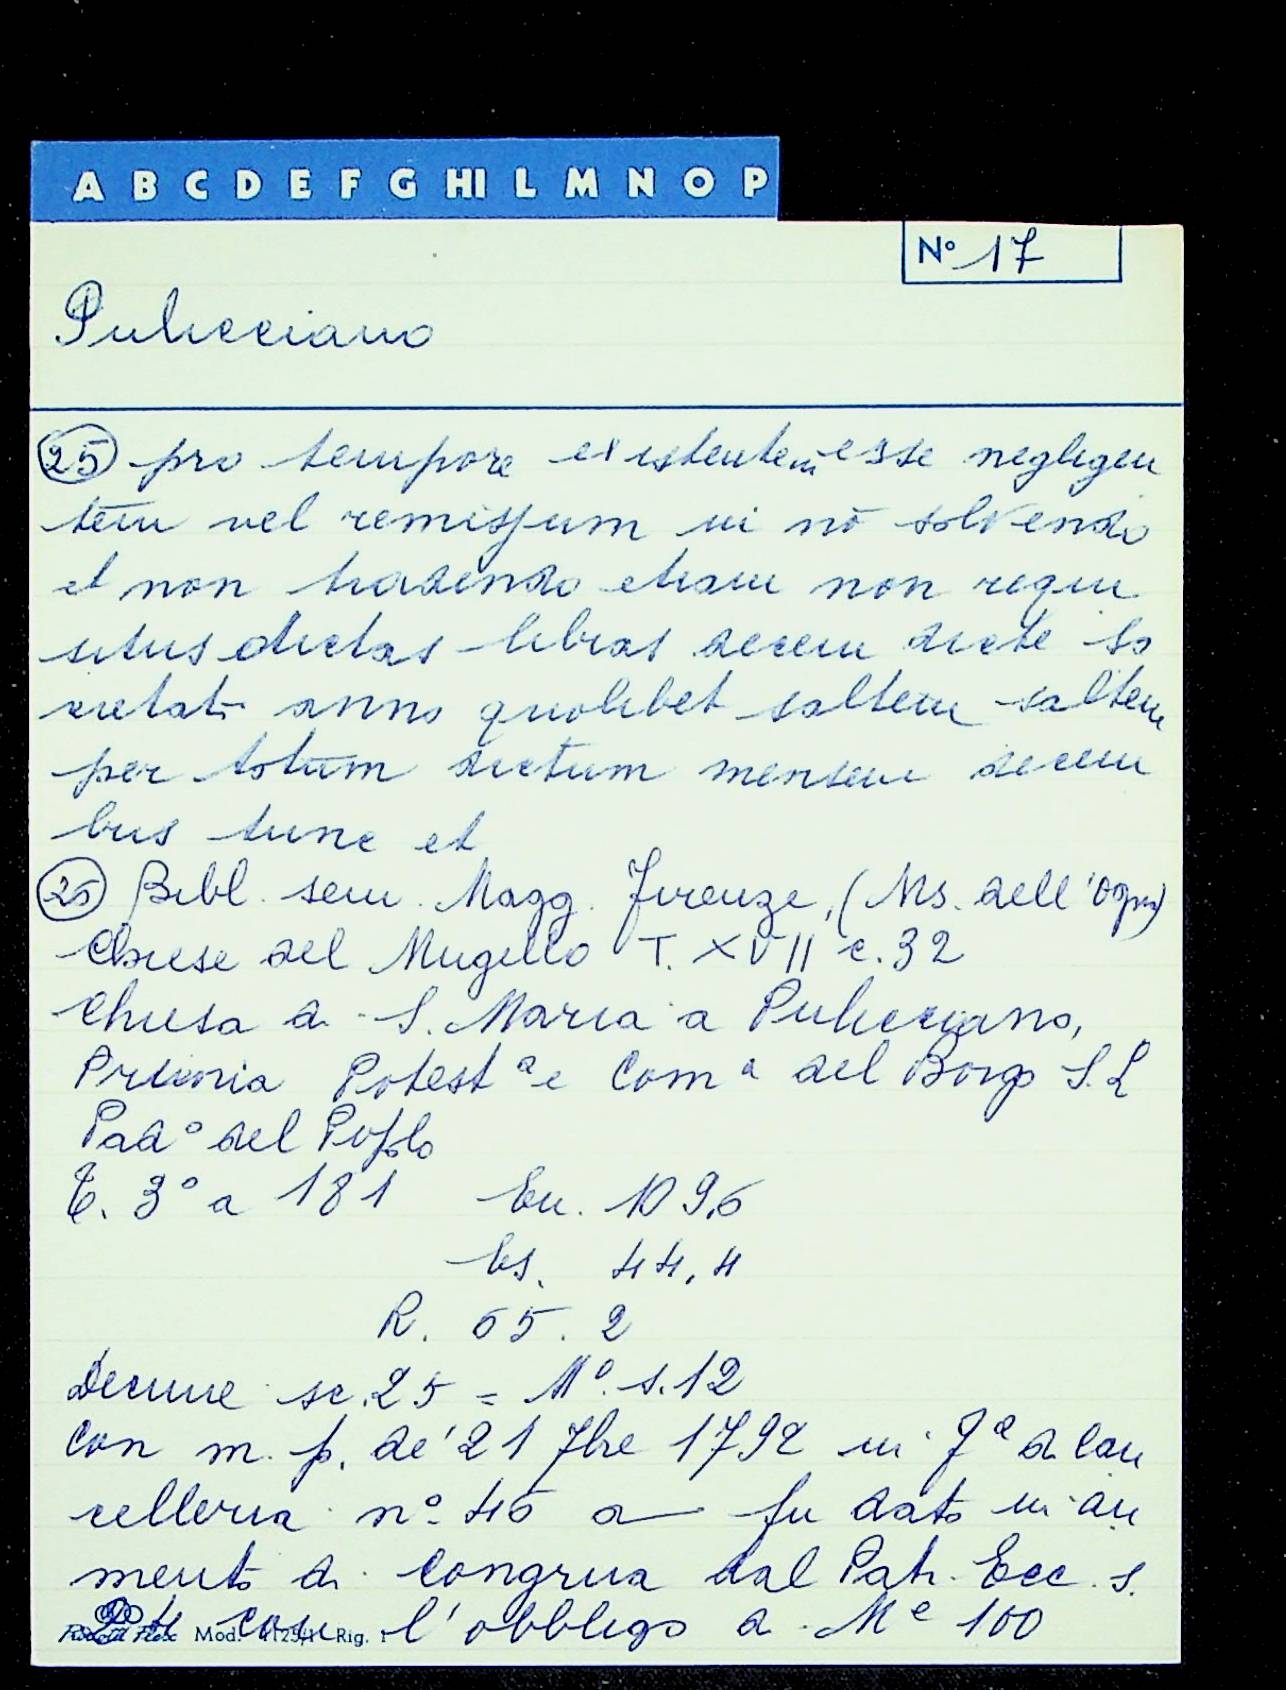 A B C D E F G HI L M N O P
N° 17
Pulicciano
25 pro tempore existentem esse negligen
tem vel remissum in nō solvendo
et non tradendo etiam non requi
situs dictas libras decem dicte so
cietati anno quolibet saltem saltem
per totum dictum mensem decem
bris tunc et
25 Bibl. sem. Magg. Firenze, (Ms. dell'Ogna)
Chiese del Mugello T. XVII c. 32
Chiesa di S. Maria a Pulicciano,
Prioria Potestª e Comª del Borgo S. L
Pad° del Popolo
T. 3° a 181 En. 109,6
Es. 44,4
R. 65.2
Decime sc. 25 = M°. s. 12
Con m. p. de' 21 7bre 1792 in Fª di Can
celleria n° 46 fu dato in au
mento di congrua dal Patr. Ecc. s.
24 con l'obbligo di Me 100
Mod. Rig. 1